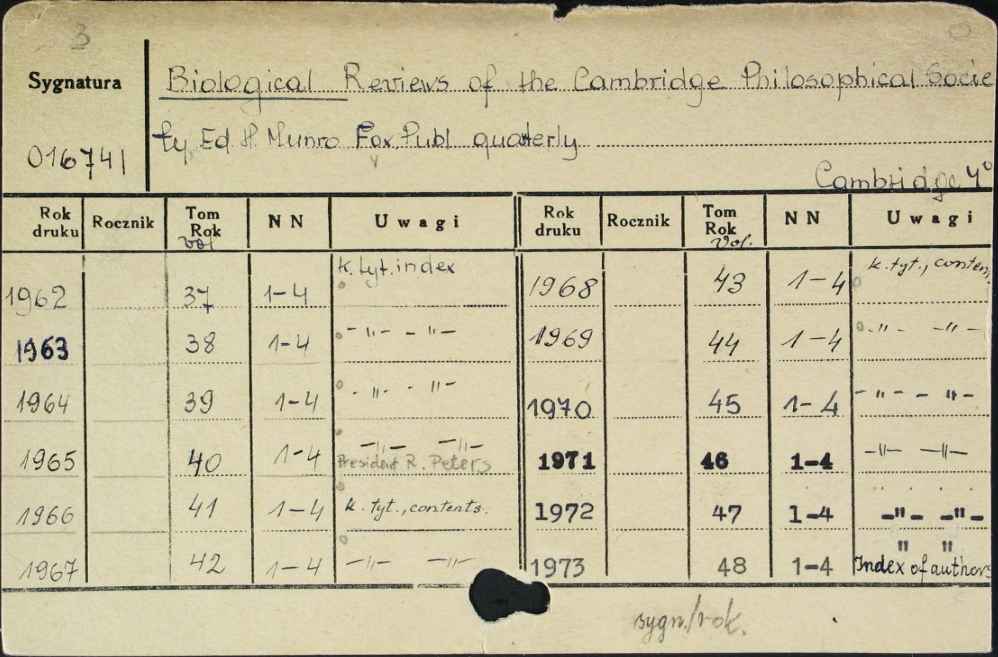 3
Sygnatura
016741
Biological Reviews of the Cambridge Philosophical Socie
ty. Ed. H. Munro Fox. Publ. quaterly
Cambridge 4°
Rok druku Rocznik Tom Rok Vol. NN Uwagi Rok druku Rocznik Tom Rok Vol. NN Uwagi
1962 37 1-4 k. tyt. index 1968 43 1-4 k. tyt., contens,
1963 38 1-4 -"- -"- 1969 44 1-4 -"- -"-
1964 39 1-4 -"- -"- 1970 45 1-4 -"- -"-
1965 40 1-4 -"- -"- President R. Peters 1971 46 1-4 -"- -"-
1966 41 1-4 k. tyt., contents. 1972 47 1-4 -"- -"-
1967 42 1-4 -"- -"- 1973 48 1-4 " " Index of authors
sygn./rok.